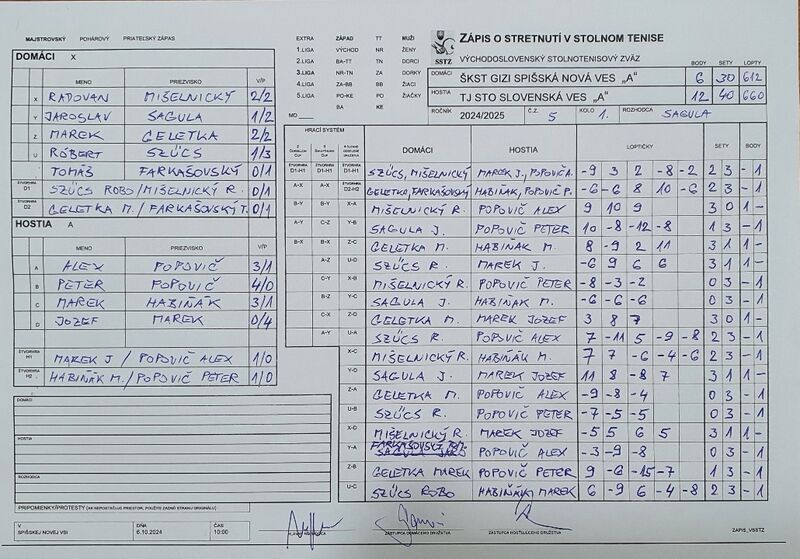 MAJSTROVSKÝ POHÁROVÝ PRIATEĽSKÝ ZÁPAS
EXTRA ZÁPAD TT MUŽI
1.LIGA VÝCHOD NR ŽENY
2.LIGA BA-TT TN DORCI
3.LIGA NR-TN ZA DORKY
4.LIGA ZA-BB BB ŽIACI
5.LIGA PO-KE PO ŽIAČKY
BA KE
MO
SSTZ
ZÁPIS O STRETNUTÍ V STOLNOM TENISE
VÝCHODOSLOVENSKÝ STOLNOTENISOVÝ ZVÄZ
BODY SETY LOPTY
DOMÁCI ŠKST GIZI SPIŠSKÁ NOVÁ VES „A“ 6 30 612
HOSTIA TJ STO SLOVENSKÁ VES „A“ 12 40 660
ROČNÍK 2024/2025 Č.Z. 5 KOLO 1. ROZHODCA SAGULA
DOMÁCI X
MENO PRIEZVISKO V/P
X RADOVAN MIŠELNICKÝ 2/2
Y JAROSLAV SAGULA 1/2
Z MAREK GELETKA 2/2
U RÓBERT SZÜCS 1/3
TOMÁŠ FARKAŠOVSKÝ 0/1
ŠTVORHRA D1 SZÜCS ROBO/MIŠELNICKÝ R. 0/1
ŠTVORHRA D2 GELETKA M./FARKAŠOVSKÝ T. 0/1
HOSTIA A
MENO PRIEZVISKO V/P
A ALEX POPOVIČ 3/1
B PETER POPOVIČ 4/0
C MAREK HABIŇÁK 3/1
D JOZEF MAREK 0/4
ŠTVORHRA H1 MAREK J / POPOVIČ ALEX 1/0
ŠTVORHRA H2 HABIŇÁK M./POPOVIČ PETER 1/0
DOMÁCI
HOSTIA
ROZHODCA
HRACÍ SYSTÉM
DOMÁCI HOSTIA LOPTIČKY SETY BODY
D1-H1 D1-H1 D1-H1 SZÜCS, MIŠELNICKÝ MAREK J., POPOVIČ A. -9 3 2 -8 -2 2 3 - 1
A-X A-X D2-H2 GELETKA, FARKAŠOVSKÝ HABIŇÁK, POPOVIČ P. -6 -6 8 10 -6 2 3 - 1
B-Y B-Y X-A MIŠELNICKÝ R. POPOVIČ ALEX 9 10 9 3 0 1 -
A-Y C-Z Y-B SAGULA J. POPOVIČ PETER 10 -8 -12 -8 1 3 - 1
B-X B-X Z-C GELETKA M. HABIŇÁK M. 8 -9 2 11 3 1 1 -
A-Z U-D SZÜCS R. MAREK J. -6 9 6 6 3 1 1 -
C-Y X-B MIŠELNICKÝ R. POPOVIČ PETER -8 -3 -2 0 3 - 1
B-Z Y-C SAGULA J. HABIŇÁK M. -6 -6 -6 0 3 - 1
C-X Z-D GELETKA M. MAREK JOZEF 3 8 7 3 0 1 -
A-Y U-A SZÜCS R. POPOVIČ ALEX 7 -11 5 -9 -8 2 3 - 1
X-C MIŠELNICKÝ R. HABIŇÁK M. 7 7 -6 -4 -6 2 3 - 1
Y-D SAGULA J. MAREK JOZEF 11 8 -8 7 3 1 1 -
Z-A GELETKA M. POPOVIČ ALEX -9 -8 -4 0 3 - 1
U-B SZÜCS R. POPOVIČ PETER -7 -5 -5 0 3 - 1
X-D MIŠELNICKÝ R. MAREK JOZEF -5 5 6 5 3 1 1 -
Y-A FARKAŠOVSKÝ POPOVIČ ALEX -3 -9 -8 0 3 - 1
Z-B GELETKA MAREK POPOVIČ PETER 9 -6 -15 -7 1 3 - 1
U-C SZÜCS ROBO HABIŇÁK MAREK 6 -9 6 -4 -8 2 3 - 1
PRIPOMIENKY/PROTESTY (AK NEPOSTAČUJE PRIESTOR, POUŽITE ZADNÚ STRANU ORIGINÁLU)
V SPIŠSKEJ NOVEJ VSI DŇA 6.10.2024 ČAS 10:00
ZÁSTUPCA DOMÁCEHO DRUŽSTVA ZÁSTUPCA HOSŤUJÚCEHO DRUŽSTVA ZAPIS_VSSTZ